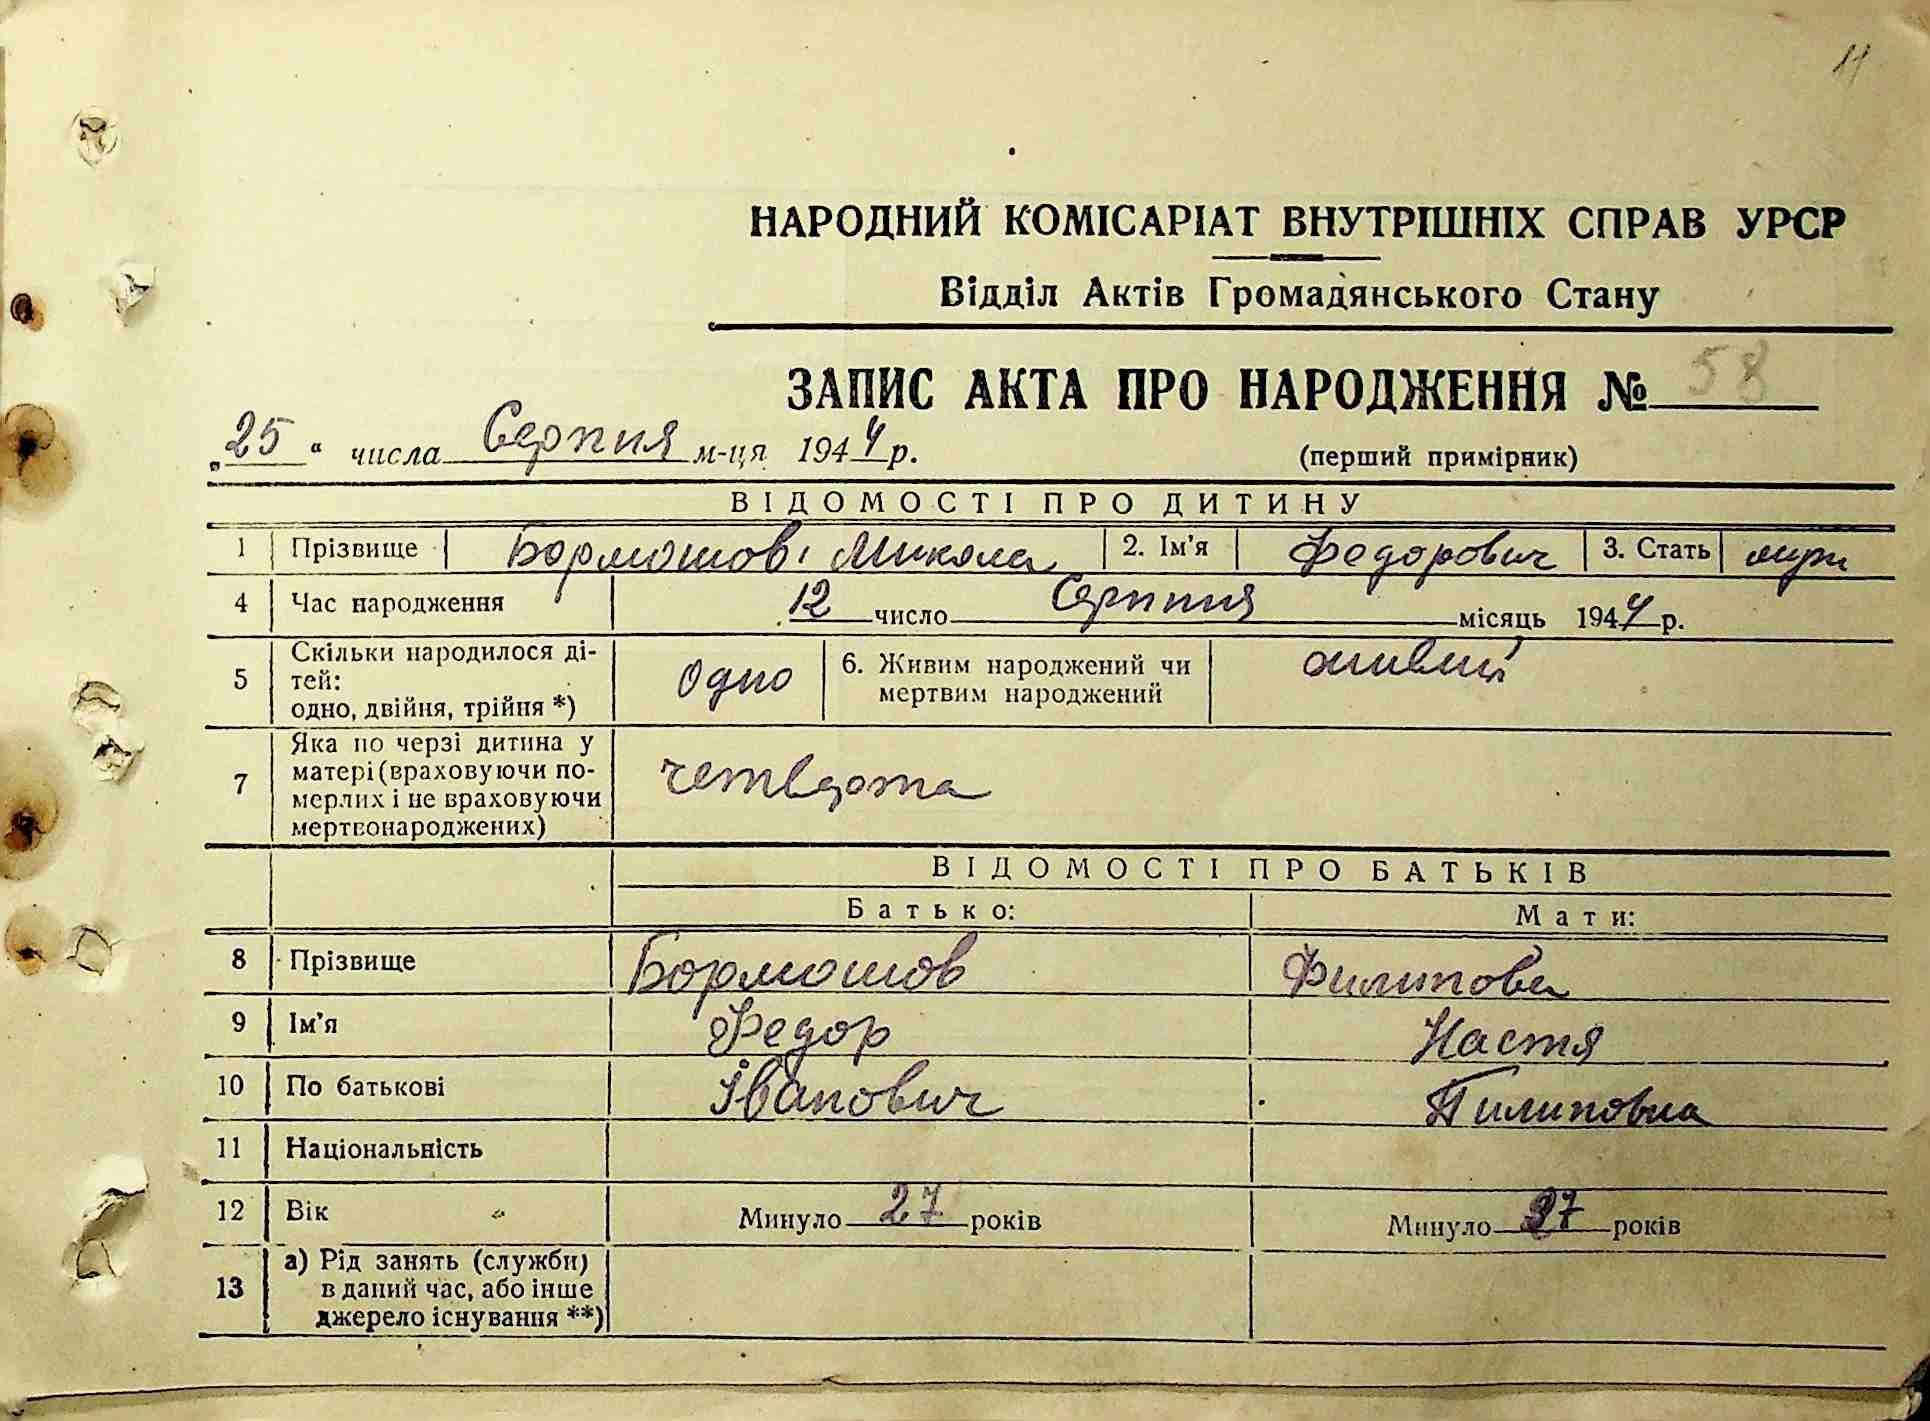 11
НАРОДНИЙ КОМІСАРІАТ ВНУТРІШНІХ СПРАВ УРСР
Відділ Актів Громадянського Стану
ЗАПИС АКТА ПРО НАРОДЖЕННЯ № 58
„25“ числа Серпня м-ця 1944 р.
(перший примірник)
ВІДОМОСТІ ПРО ДИТИНУ
1 Прізвище Бормошов Микола 2. Ім'я Федорович 3. Стать
4 Час народження 12 число Серпня місяць 1944 р.
5 Скільки народилося ді-
тей:
одно, двійня, трійня *) Одно
6. Живим народжений чи
мертвим народжений живий
7 Яка по черзі дитина у
матері (враховуючи по-
мерлих і не враховуючи
мертвонароджених) четверта
ВІДОМОСТІ ПРО БАТЬКІВ
Батько: Мати:
8 Прізвище Бормошов Филипова
9 Ім'я Федор Настя
10 По батькові Іванович Пилиповна
11 Національність
12 Вік Минуло 27 років Минуло 37 років
13 а) Рід занять (служби)
в даний час, або інше
джерело існування **)